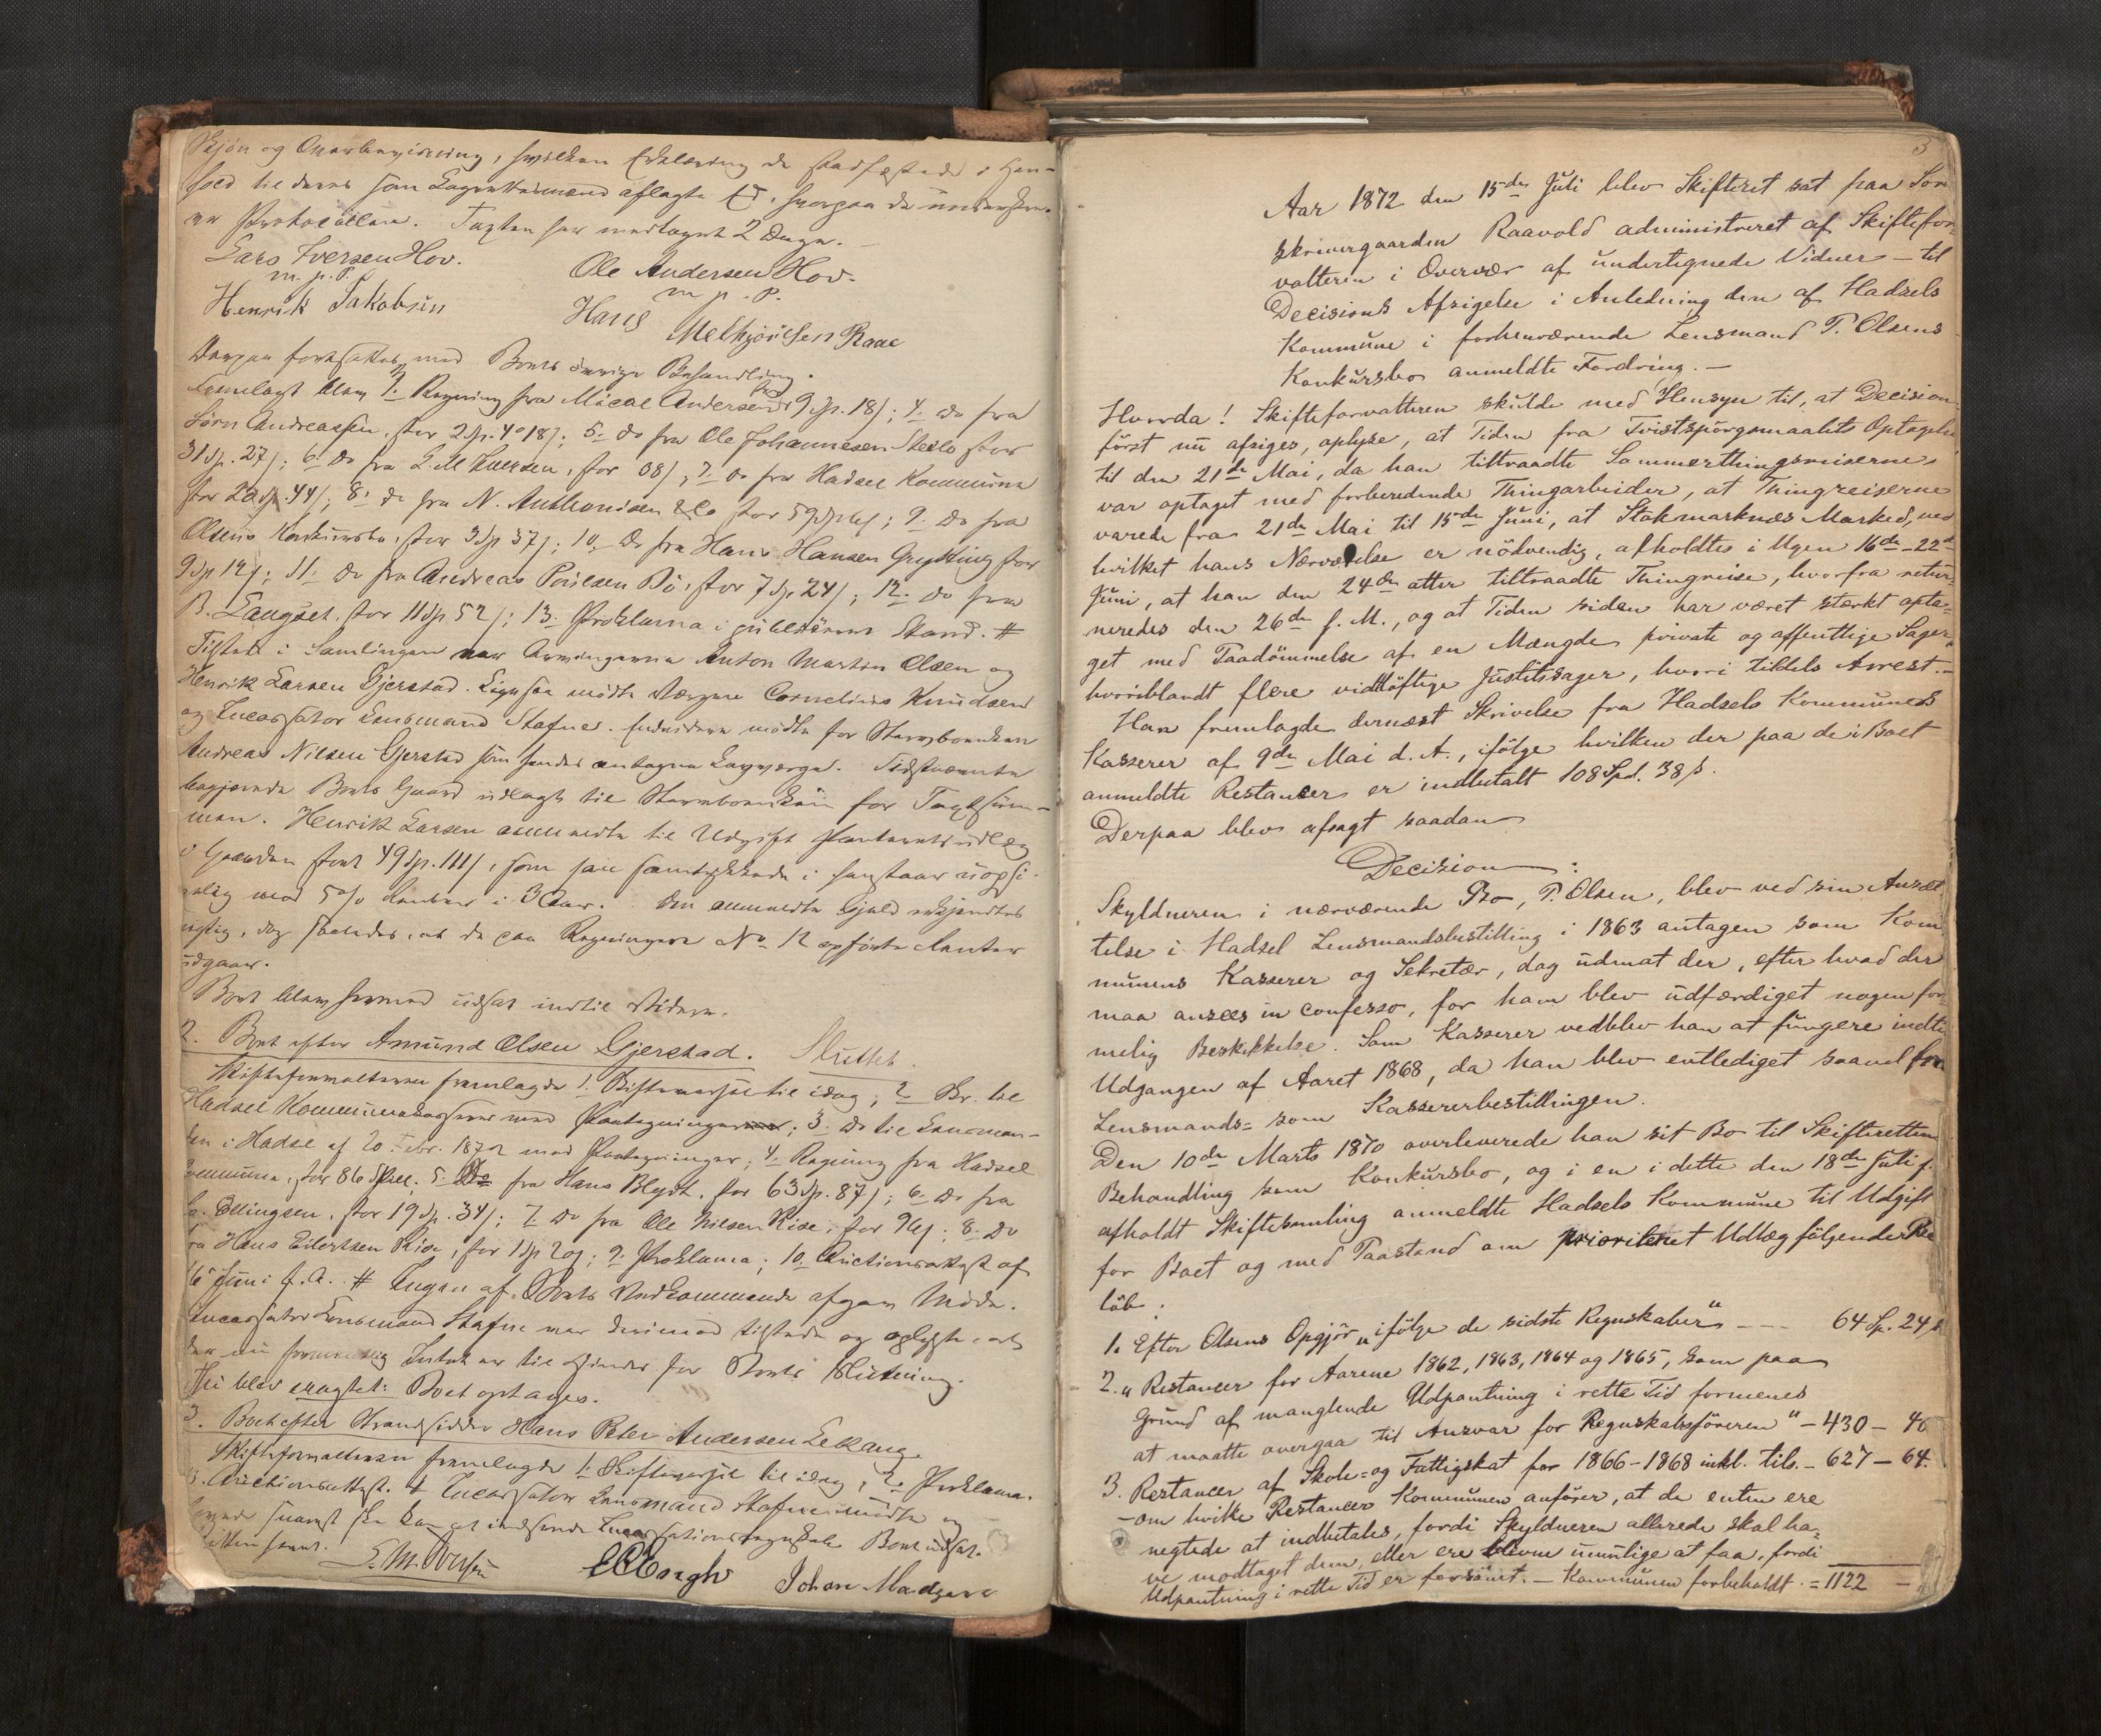 Skjøn og Overbevisning, hvilken Erklæring de stadfæstede i Hen-
hold til deres som Lagrettesmænd aflagte Ed, hvorpaa de underskre-
ve Protocollen. Taxten har medtaget 2 Dage.
Lars Iversen Hov. Ole Andersen Hov.
m. p. P. m. p. P.
Henrik Jakobsen Hans Melkjørsen Raae
Derpaa fortsattes med Boets øvrige Behandling.
Fremlagt blev 3. Regning fra Andersen 9 Sp. 18 ß; 4. do fra
Sørn Andreassen, stor 2 Sp. 40 18 ß; 5. do fra Ole Johannesen Steilo stor
31 Sp. 27 ß; 6. do fra L. M. Iversen, stor 08 ß; 7. do fra Hadsel Kommune
stor 20 Sp. 44 ß; 8. do fra N. Anthonisen & Co stor; 9. do fra
Olsens Konkursbo, stor 3 Sp 37 ß; 10. do fra Hans Hansen Grytting stor
9 Sp 12 ß; 11. do fra Andreas Poulsen Bö, stor 7 Sp. 24 ß; 12. do fra
B. Laugset, stor 11 Sp 52 ß; 13. Proklama i publiceret Stand. #
Tilstede i Samlingen var Arvingerne Anton Martin Olsen og
Henrik Larsen Gjerstad. Ligesaa mødte Værgen Cornelius Knudsen
og Incassator Lensmand Stafne. Endvidere mødte for Stervboenken
Andreas Nilsen Gjerstad som hendes antagne Lavværge. Sidstnævnte
begjærede Boets Gaard udlagt til Stervboenken for Taxtsum-
men. Henrik Larsen anmeldte til Udgift Panterets udlæg
i Gaarden stort 49 Sp. 111 ß, som han samtykkede i henstaar uopsi-
gelig mod 5 % Renter i 3 Aar. Den anmeldte Gjeld erkjendtes
rigtig, dog saaledes, at de paa Regningen No 12 opførte Renter
udgaar.
Boet blev hermed udsat indtil videre.
2. Boet efter Amund Olsen Gjerstad. Sluttet.
Skifteforvalteren fremlagde 1. Skiftevarsel til idag; 2. Br. til
Hadsel Kommunekasserer med Paategninger; 3. Do til Lensman-
den i Hadsel af 20 Febr. 1872 med Paategninger; 4. Regning fra Hadsel
Kommune, stor 86 Skill; 5. Do fra Hans Blydt, stor 63 Sp. 87 ß; 6. Do fra
Ellingsen, stor 19 Sp. 34 ß; 7. Do fra Ole Nilsen Rise, stor 96 ß; 8. Do
fra Hans Eilertsen Rise, stor 1 Sp 20 ß; 9. Proklama; 10. Auctionsattest af
Juni f. A. # Ingen af Boets Vedkommende afgav Møde.
Incassator Lensmand Stafne var derimod tilstede og oplyste, at
der nu formentlig Intet er til Hinder for Boets Slutning.
Thi blev eragtet: Boet optages.
3. Boet efter Strandsidder Hans Peter Andersen Lekang.
Skifteforvalteren fremlagde 1. Skiftevarsel til idag; 2. Proklama.
3. Auctionsattest. # Incassator Lensmand Stafne mødte og
snarest ske kan at indsende Incassationsregnskab. Boet udsat.
Retten hævet.
L. M. Iversen Johan Madsen
3
Aar 1872 den 15de Juli blev Skifteret sat paa Soren-
skrivergaarden Raavold administreret af Skiftefor-
valteren i Overvær af undertegnede Vidner – til
Decisions Afsigelse i Anledning den af Hadsels
Kommune i forhenværende Lensmand P. Olsens
Konkursbo anmeldte Fordring. –
Hvorda! Skifteforvalteren skulde med Hensyn til, at Decision
først nu afsiges, oplyse, at Tiden fra Tvistspørgsmaalets Optagelse
til den 21de Mai, da han tiltraadte Sommerthingsreiserne
var optaget med forberedende Thingarbeider, at Thingreiserne
varede fra 21de Mai til 15de Juni, at Stokmarknæs Marked, ved
hvilket hans Nærværelse er nödvendig, afholdtes i Ugen 16de – 22de
Juni, at han den 24de atter tiltraadte Thingreise, hvorfra retur-
neredes den 26de f. M., og at Tiden siden har været stærkt opta-
get med Paadömmelse af en Mængde private og offentlige Sager,
hvoriblandt flere vidtlöftige Justitssager, hvori tildels Arrest. –
Han fremlagde dernæst Skrivelse fra Hadsels Kommunes
Kasserer af 9de Mai d. A., ifölge hvilken der paa de i Boet
anmeldte Restancer er indbetalt 108 Spd. 38 ß.
Derpaa blev afsagt saadan
Decision:
Skyldneren i nærværende Bo, P. Olsen, blev ved sin Ansæt-
telse i Hadsel Lensmandsbestilling i 1863 antagen som Kom-
munens Kasserer og Sekretær, dog udenat der, efter hvad der
maa ansees in confesso, for ham blev udfærdiget nogen for-
melig Beskikkelse. Som Kasserer vedblev han at fungere indtil
Udgangen af Aaret 1868, da han blev entlediget saavel fra
Lensmands- som Kassererbestillingen.
Den 10de Marts 1870 overleverede han sit Bo til Skifterettens
Behandling som Konkursbo, og i en i dette den 18de Juli f.
afholdt Skiftesamling anmeldte Hadsels Kommune til Udgift
for Boet og med Paastand om prioriteret Udlæg fölgende Be-
löb:
1. Efter Olsens Opgjör „ifölge de sidste Regnskaber“ – – – 64 Sp. 24 ß
2. „Restancer for Aarene 1862, 1863, 1864 og 1865, som paa
Grund af manglende Udpantning i rette Tid formenes
at maatte overgaa til Ansvar for Regnskabsföreren“ – 430 – 40
3. Restancer af Skole- og Fattigskat for 1866–1868 inkl. tils. – 627 – 64.
– om hvilke Restancer Kommunen anförer, at de enten ere
negtede at indbetales, fordi Skyldneren allerede skal ha-
ve modtaget dem, eller ere blevne umulige at faa, fordi
Udpantning i rette Tid er forsömt. – Kommunen forbeholdt. = 1122 –